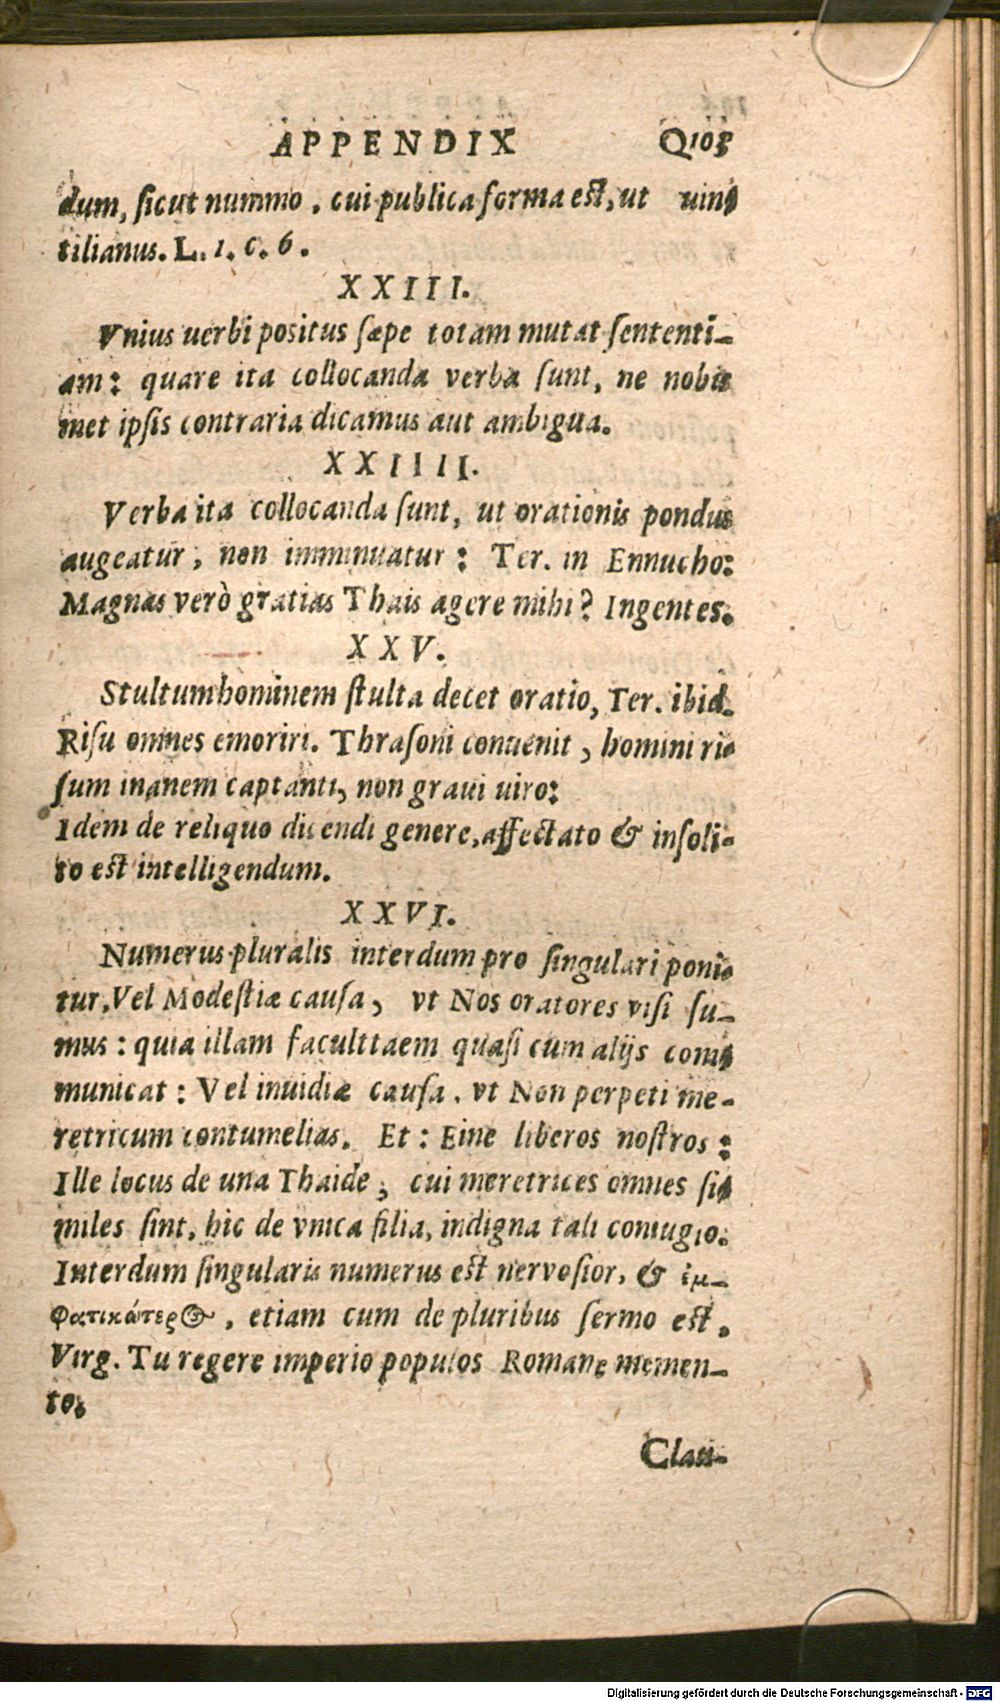 APPENDIX Q103
dum, sicut nummo, cui publica forma est, ut uin⸗
tilianus. L. 1. c. 6.
XXIII.
Vnius uerbi positus sæpe totam mutat sententi-
am: quare ita collocanda verba sunt, ne nobis
met ipsis contraria dicamus aut ambigua.
XXIIII.
Verba ita collocanda sunt, ut orationis pondus
augeatur, non imminuatur: Ter. in Ennucho:
Magnas verò gratias Thais agere mihi? Ingentes.
XXV.
Stultum hominem stulta decet oratio, Ter. ibid.
Risu omnes emoriri. Thrasoni conuenit, homini ri⸗
sum inanem captanti, non graui uiro:
Idem de reliquo dicendi genere, affectato & insoli⸗
to est intelligendum.
XXVI.
Numerus pluralis interdum pro singulari poni⸗
tur. Vel Modestiæ causa, vt Nos oratores visi su-
mus: quia illam faculttaem quasi cum alijs com⸗
municat: Vel inuidiæ causa, vt Non perpeti me-
retricum contumelias. Et: Eine liberos nostros:
Ille locus de una Thaide, cui meretrices omnes si⸗
miles sint, hic de vnica filia, indigna tali coniugio.
Interdum singularis numerus est nervosior, & ἐμ-
φατικώτερος, etiam cum de pluribus sermo est.
Virg. Tu regere imperio populos Romane memen-
to.
Clau-
Digitalisierung gefördert durch die Deutsche Forschungsgemeinschaft - DFG